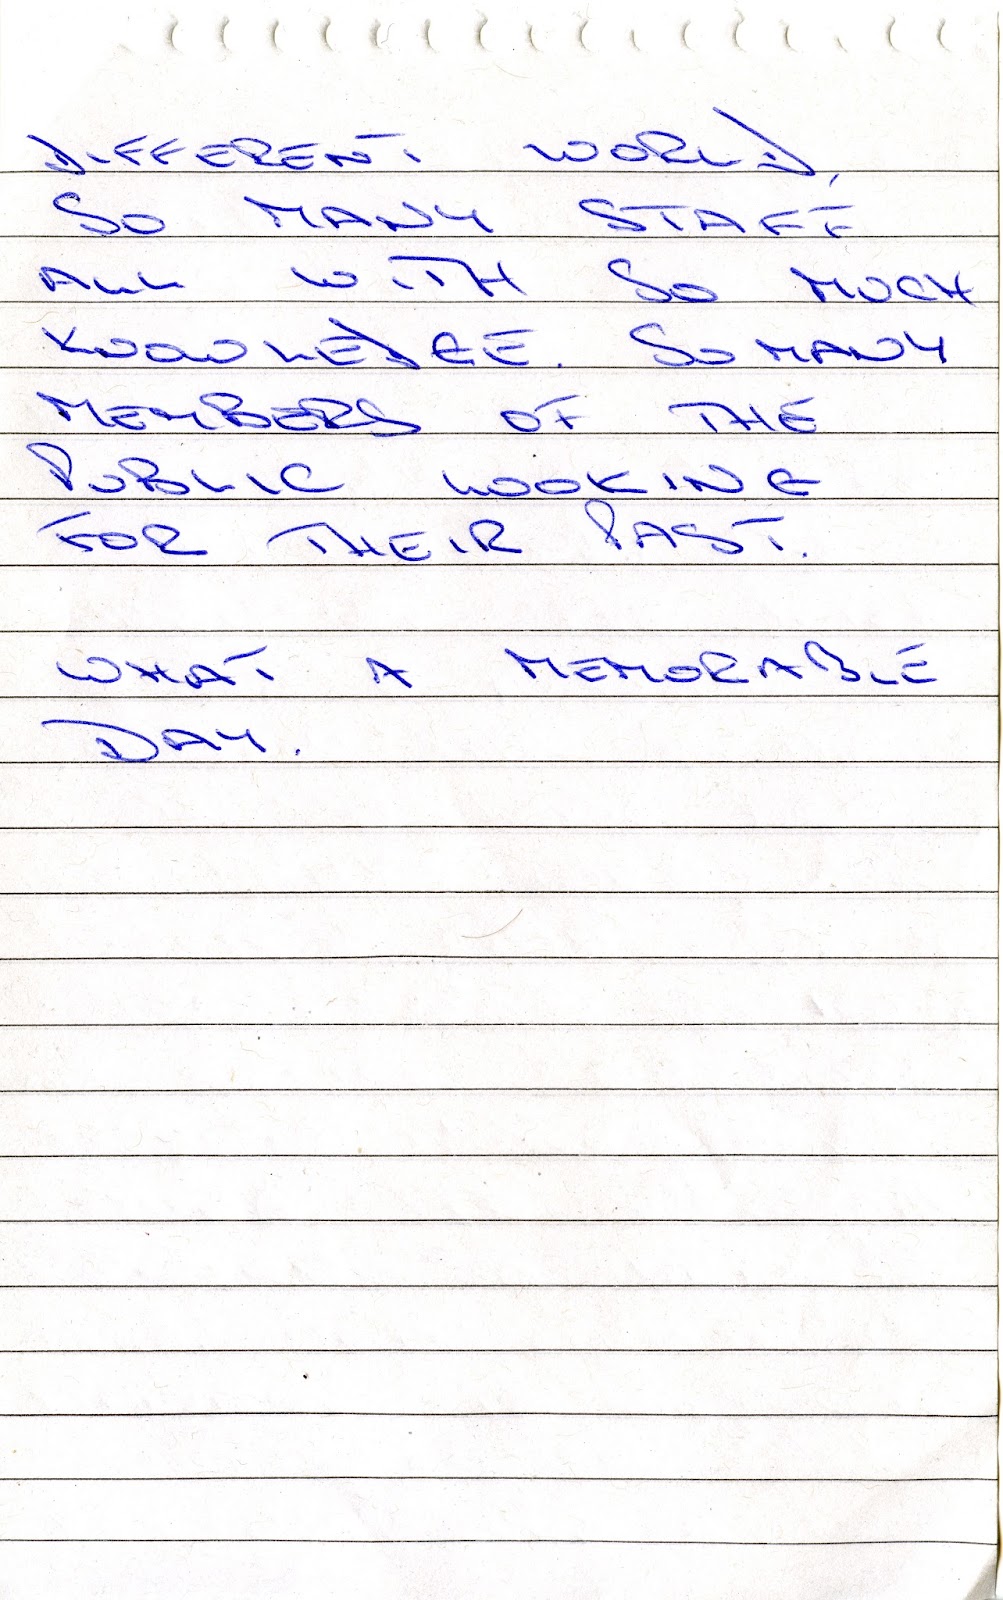 DIFFERENT WORLD,
SO MANY STAFF
ALL WITH SO MUCH
KNOWLEDGE. SO MANY
MEMBERS OF THE
PUBLIC LOOKING
FOR THEIR PAST.
WHAT A MEMORABLE
DAY.